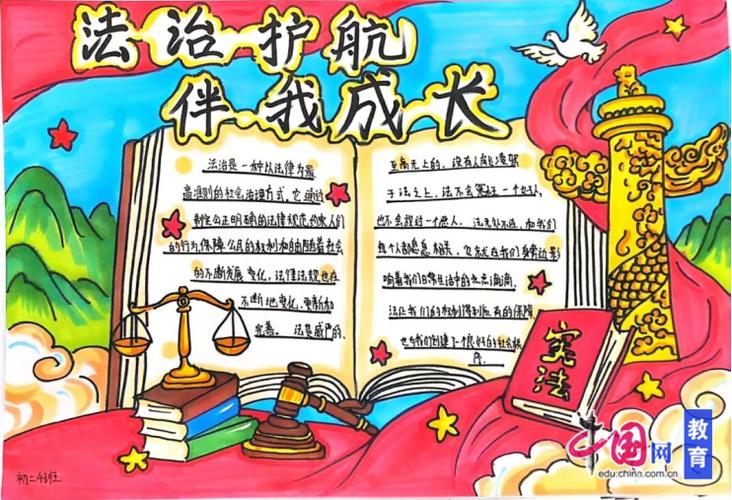 法治护航
伴我成长
法治是一种以法律为最
高准则的社会治理方式，它通过
制定公正明确的法律规范约束人们
的行为保障公民的权利和自由随着社会
的不断发展变化，法律法规也在
不断地变化，更新和
完善。法是威严的，
至高无上的，没有人能凌驾
于法之上，法不会冤枉一个好人，
也不会放过一个恶人。法无处不在，和我们
每个人都息息相关，它就在我们身边影
响着我们日常生活中的点点滴滴，
法让我们的权利得到应有的保障，
也为我们创建了个良好的社会秩
序。
宪法
初二4班
中国网
教育
edu.china.com.cn